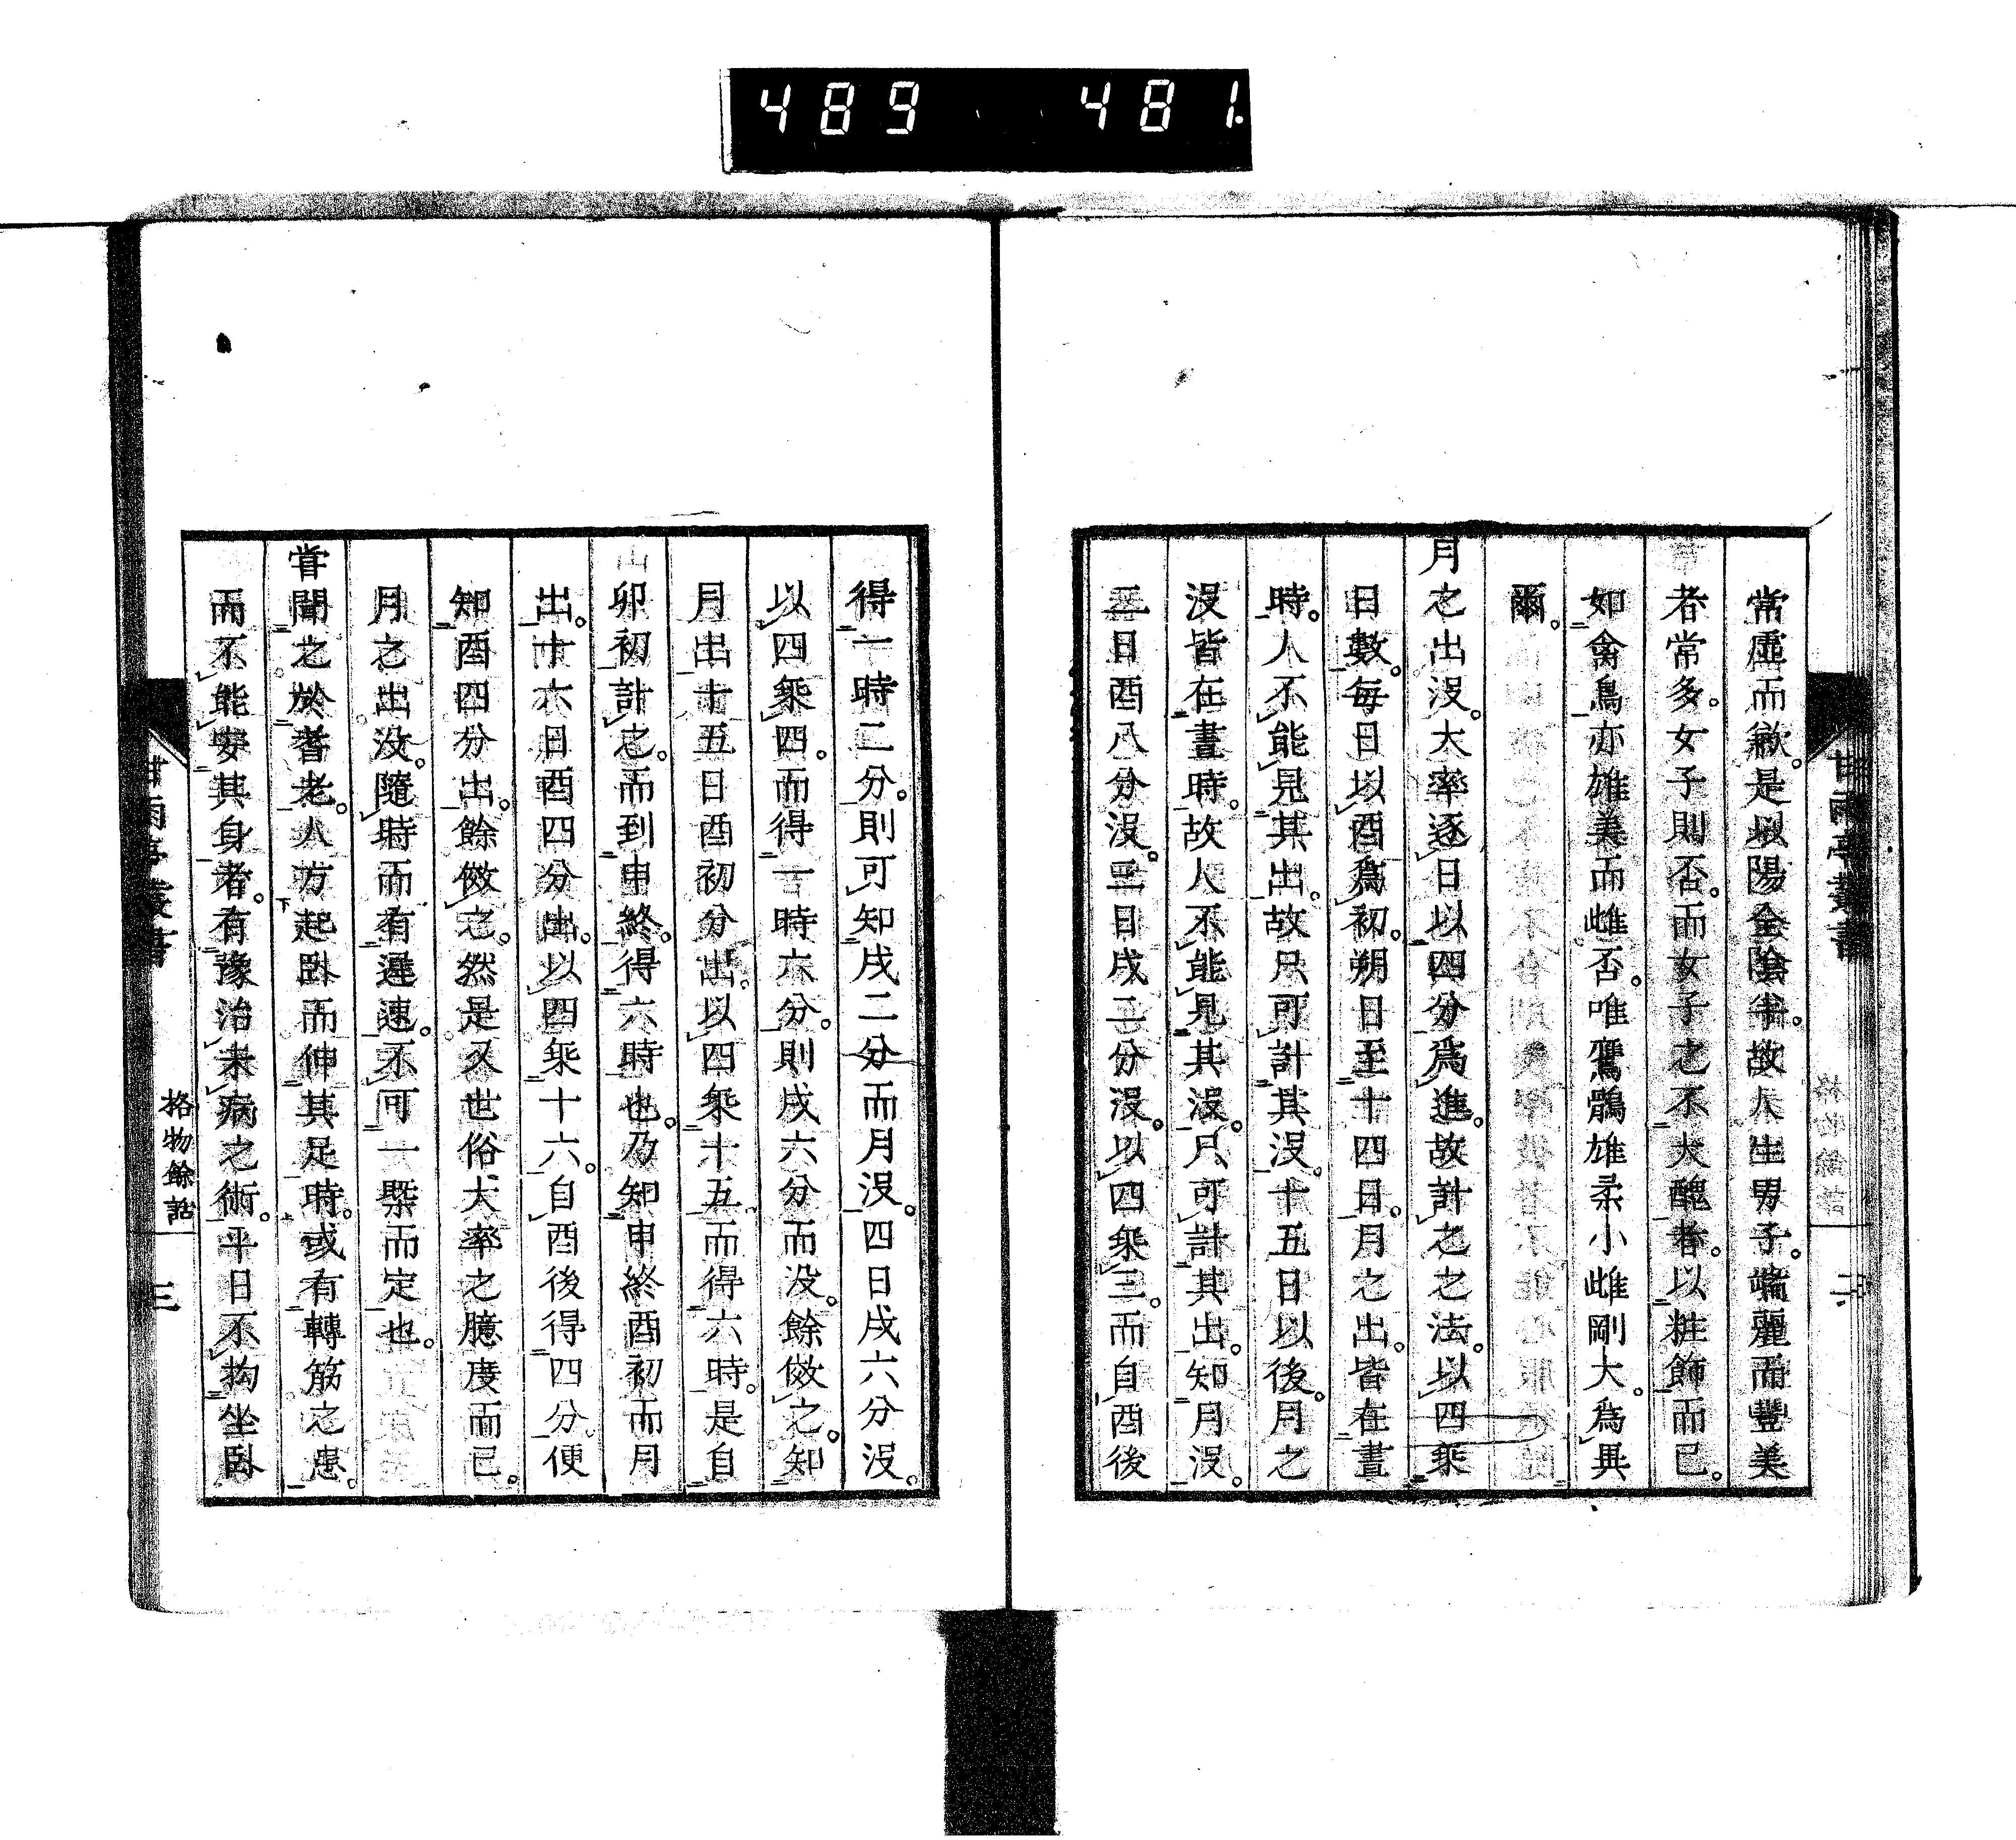 489 481.
常虛而歉。是以陽全陰半。故人生男子。端麗而豐美
者常多。女子則否。而女子之不大醜者。以粧飾而已。
如禽鳥亦雄美而雌否。唯鷹鶻雄柔小雌剛大。為異
爾。
月之出沒。大率逐日以四分為進。故計之之法。以四乘
日數。每日以酉為初。朔日至十四日。月之出。皆在晝
時。人不能見其出。故只可計其沒。十五日以後。月之
沒皆在晝時。故人不能見其沒。只可計其出。知月沒。
二日酉八分沒。三日戌二分沒。以四乘三。而自酉後
甘雨亭叢書 二
得一時二分。則可知戌二分而月沒。四日戌六分沒。
以四乘四。而得一時六分。則戌六分而沒。餘倣之。知
月出十五日酉初分出。以四乘十五。而得六時。是自
卯初計之。而到申終。得六時也。乃知申終酉初而月
出。十六日酉四分出。以四乘十六。自酉後得四分。便
知酉四分出。餘倣之。然是又世俗大率之臆度而已。
月之出没。隨時而有遲速。不可一槩而定也。
嘗聞之於耆老。人方起臥而伸其足時。或有轉筋之患。
而不能安其身者。有豫治未病之術。平日不拘坐臥
甘雨亭叢書 格物餘話 三